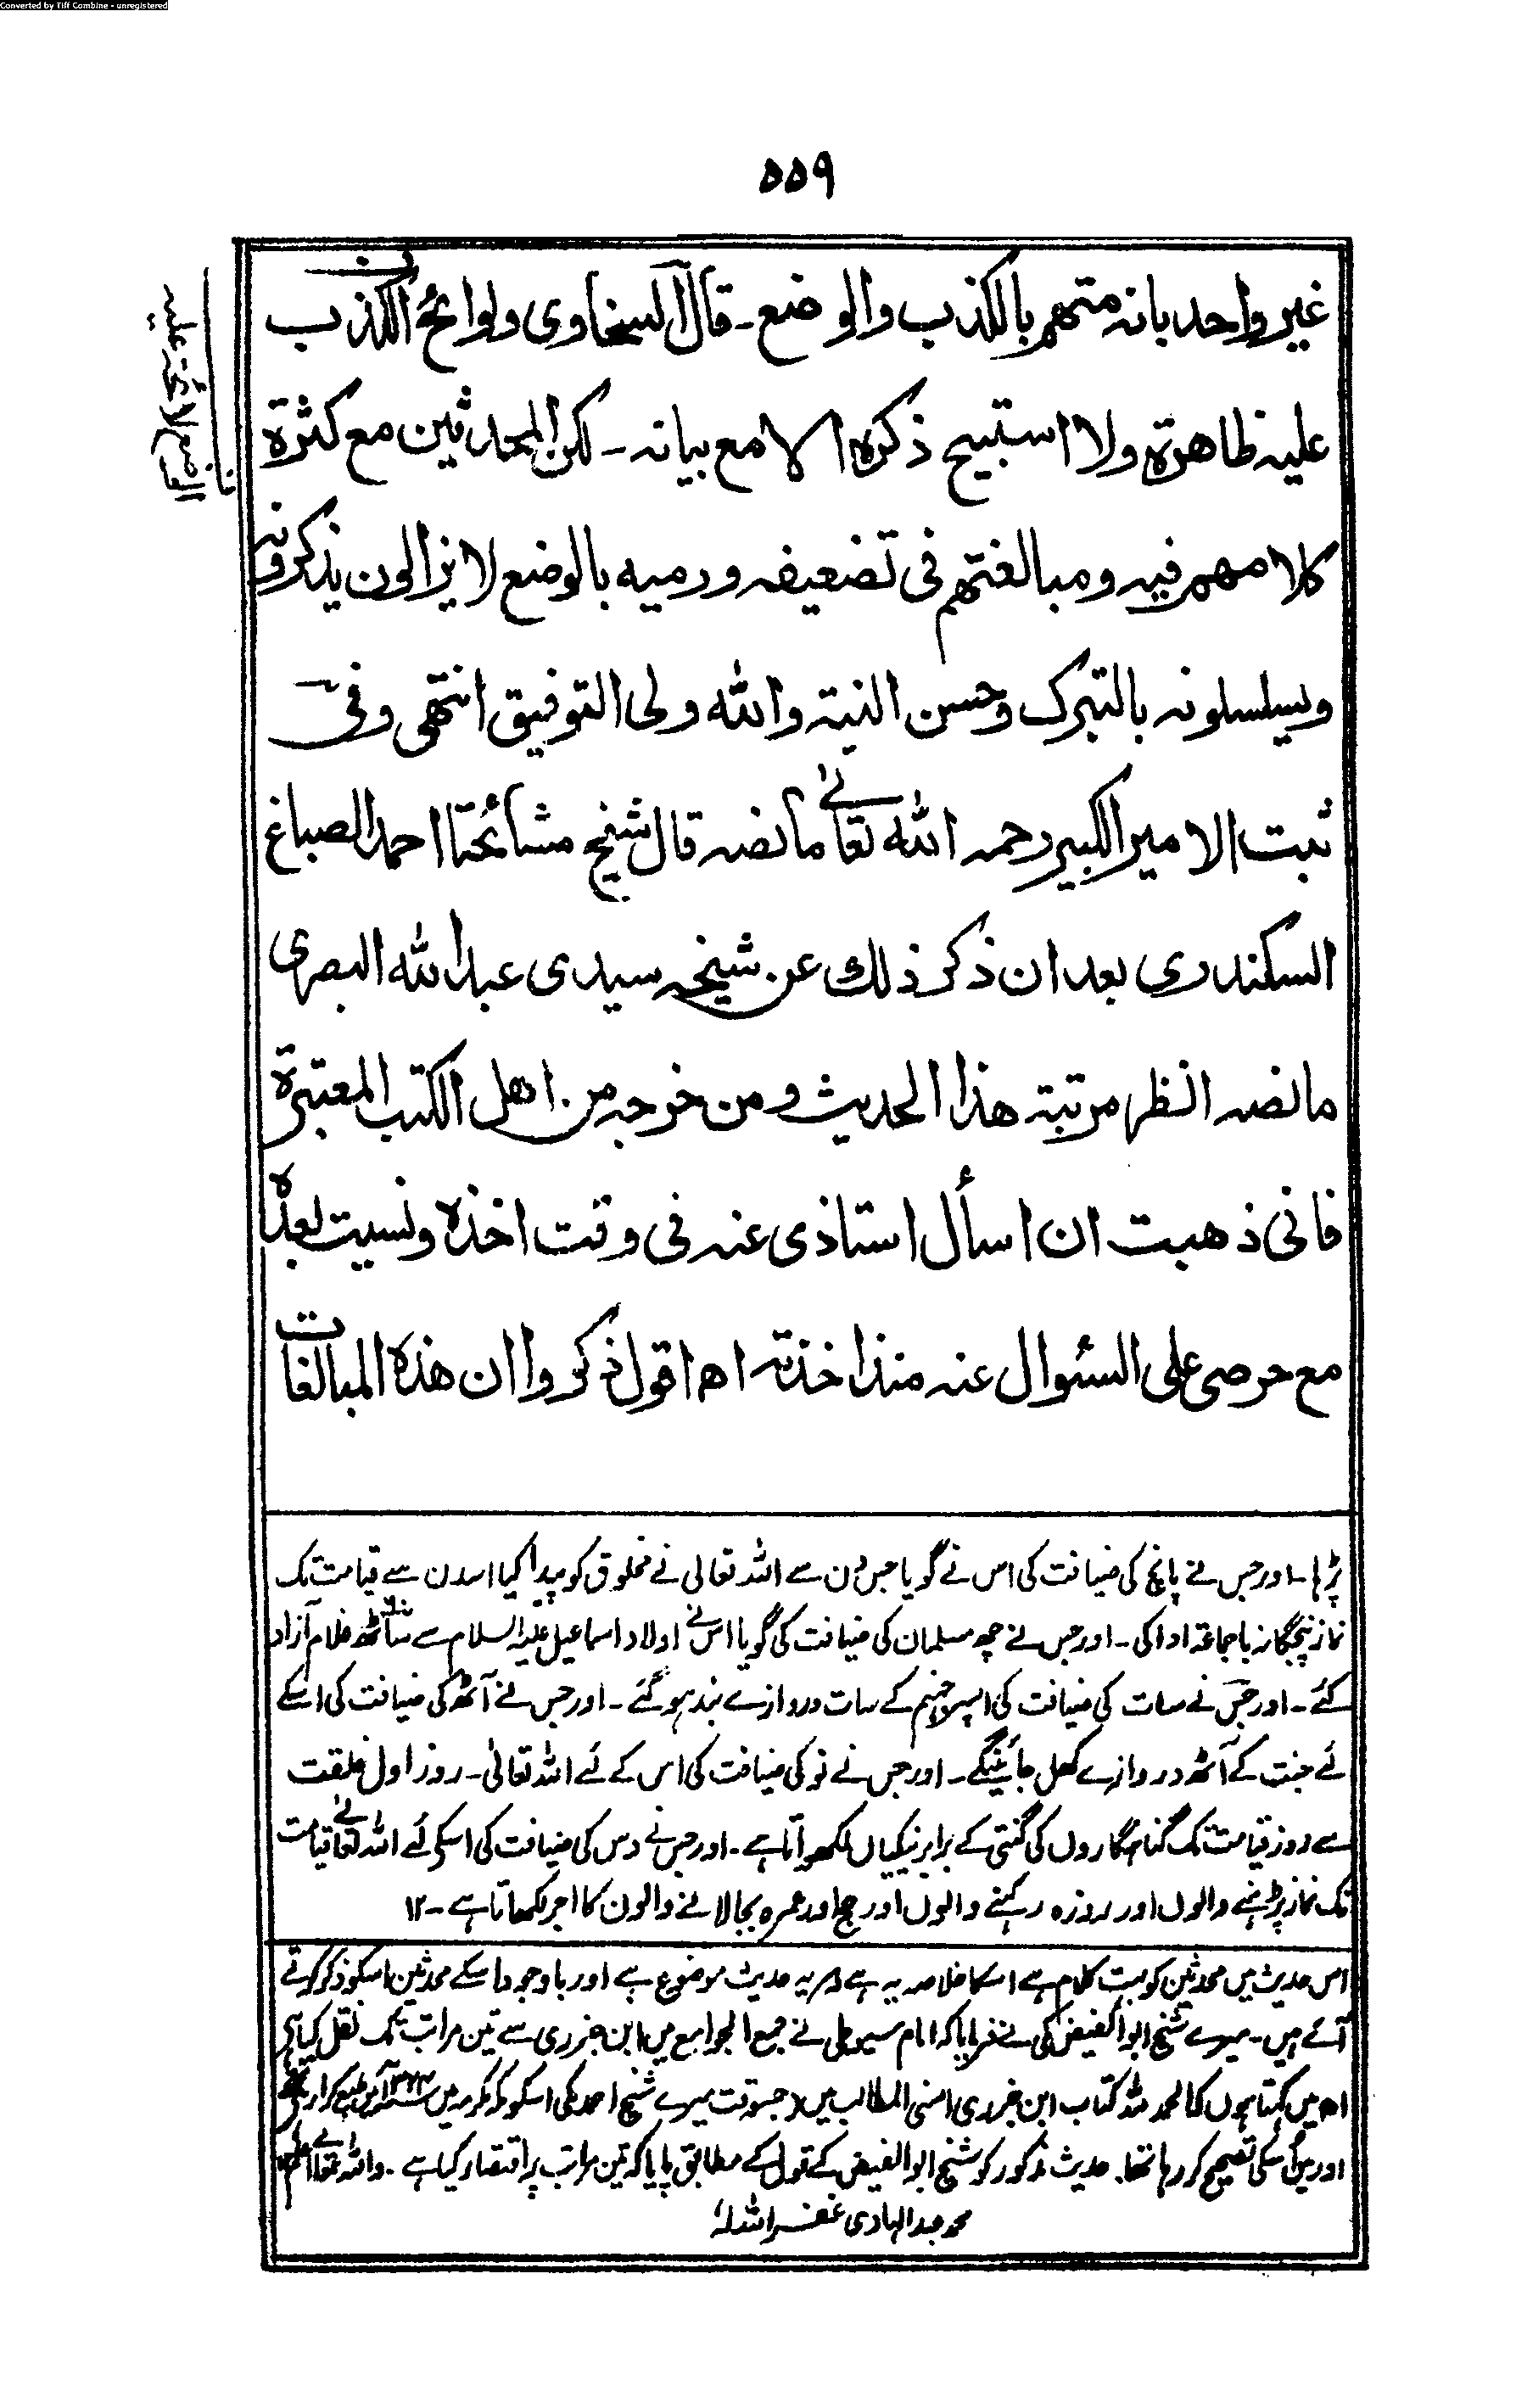 Converted by Tiff Combine - unregistered
۵۵۹
غير واحد بانه متهم بالكذب والوضع ـ قال السخاوى ولوائح الكذب
عليه ظاهرة ولا استبيح ذكره الا مع بيانه ـ لكن المحدثين مع كثرة
كلامهم فيه ومبالغتهم فى تضعيفه ورميه بالوضع لا يزالون يذكرونه
ويسلسلونه بالتبرك وحسن النية والله ولى التوفيق انتهى وفى
ثبت الامير الكبير رحمه الله تعالى ما نصه قال شيخ مشائخنا احمد الصباغ
السكندرى بعد ان ذكر ذلك عن شيخه سيدى عبد الله البصرى
ما نصه انظر مرتبة هذا الحديث ومن خرجه من اهل الكتب المعتبرة
فانى ذهبت ان اسأل استاذى عنه فى وقت اخذه ونسيت بعده
مع حرصى على السئوال عنه منذ اخذته اه اقول ذكروا ان هذه المبالغات
الوضع لائحة عليه
پڑہا ۔ اور جس نے پانچ کی ضیافت کی اس نے گویا جس دن سے اللہ تعالی نے مخلوق کو پیدا کیا اسدن سے قیامت تک
نماز پنجگانہ باجماعۃ ادا کی ۔ اور جس نے چھ مسلمان کی ضیافت کی گویا اس نے اولاد اسماعیل علیہ السلام سے ساٹھ غلام آزاد
کئے ۔ اور جس نے سات کی ضیافت کی اسپر جہنم کے سات دروازے بند ہوگئے ۔ اور جس نے آٹھ کی ضیافت کی اسکے
لئے جنت کے آٹھ دروازے کھل جائینگے ۔ اور جس نے نو کی ضیافت کی اس کے لئے اللہ تعالٰی ۔ روز اول خلقت
سے روز قیامت تک گناہگاروں کی گنتی کے برابر نیکیاں لکھواتا ہے ۔ اور جس نے دس کی ضیافت کی اسکے لئے اللہ تعالٰی قیامت
تک نماز پڑہنے والوں اور روزہ رکہنے والوں اور حج اور عمرہ بجالانے والون کا اجر لکھاتا ہے ۔ ۱۲
اس حدیث میں محدثین کو بہت کلام ہے اسکا خلاصہ یہ ہے کہ یہ حدیث موضوع ہے اور باوجود اسکے محدثین اسکو ذکر کرتے
آئے ہیں ۔ میرے شیخ ابو الفیض مکی نے فرمایا کہ امام سیوطی نے جمع الجوامع میں ابن جزری سے تین مراتب تک نقل کیا ہے
اھ میں کہتا ہوں کہ الحمد للہ کتاب ابن جزری اسنی المطالب میں (جسوقت میرے شیخ احمد مکی اسکو مکہ مکرمہ میں
اور میں اسکی تصحیح کر رہا تھا۔ حدیث مذکور کو شیخ ابو الفیض کے قول کے مطابق پایا کہ تین مراتب پر اقتصار کیا ہے ۔ واللہ تعالٰی اعلم
محمد عبد الہادی غفر اللہ لہ